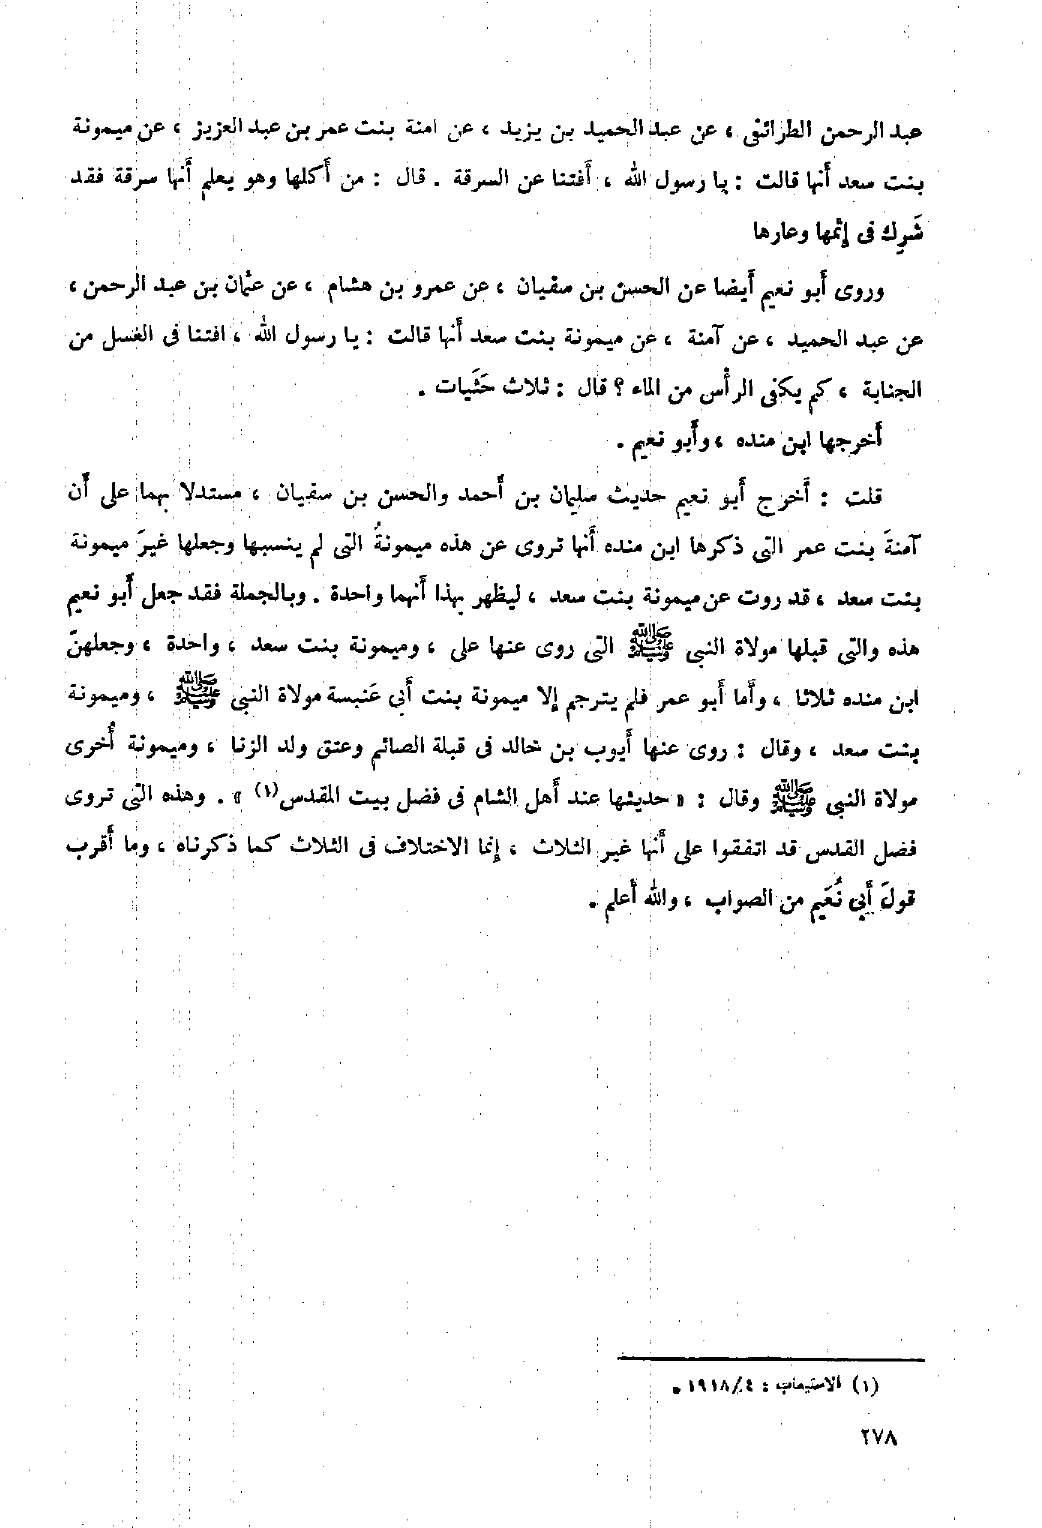 عبد الرحمن الطرائفى ، عن عبد الحميد بن يزيد ، عن امنة بنت عمر بن عبد العزيز ، عن ميمونة
بنت سعد أنها قالت : يا رسول الله ، أفتنا عن السرقة . قال : من أكلها وهو يعلم أنها سرقة فقد
شَرِك فى إثمها وعارها
وروى أبو نعيم أيضا عن الحسن بن سفيان ، عن عمرو بن هشام ، عن عثمان بن عبد الرحمن ،
عن عبد الحميد ، عن آمنة ، عن ميمونة بنت سعد أنها قالت : يا رسول الله ، افتنا فى الغسل من
الجنابة ، كم يكفى الرأس من الماء ؟ قال : ثلاث حَثَيات .
أخرجها ابن منده ، وأبو نعيم .
قلت : أخرج أبو نعيم حديث سليمان بن أحمد والحسن بن سفيان ، مستدلا بهما على أن
آمنةَ بنت عمر التى ذكرها ابن منده أنها تروى عن هذه ميمونةُ التى لم ينسبها وجعلها غيرَ ميمونة
بنت سعد ، قد روت عن ميمونة بنت سعد ، ليظهر بهذا أنهما واحدة . وبالجملة فقد جعل أبو نعيم
هذه والتى قبلها مولاة النبى ﷺ التى روى عنها على ، وميمونة بنت سعد ، واحدة ، وجعلهنّ
ابن منده ثلاثا ، وأما أبو عمر فلم يترجم إلا ميمونة بنت أبى عَنبسة مولاة النبى ﷺ ، وميمونة
بنت سعد ، وقال : روى عنها أيوب بن خالد فى قبلة الصائم وعتق ولد الزنا ، وميمونة أُخرى
مولاة النبى ﷺ وقال : « حديثها عند أهل الشام فى فضل بيت المقدس(١) » . وهذه التى تروى
فضل القدس قد اتفقوا على أنها غير الثلاث ، إنما الاختلاف فى الثلاث كما ذكرناه ، وما أقرب
قولَ أبى نُعَيم من الصواب ، والله أعلم .
(١) الاستيعاب : ٤/١٩١٨ .
٢٧٨